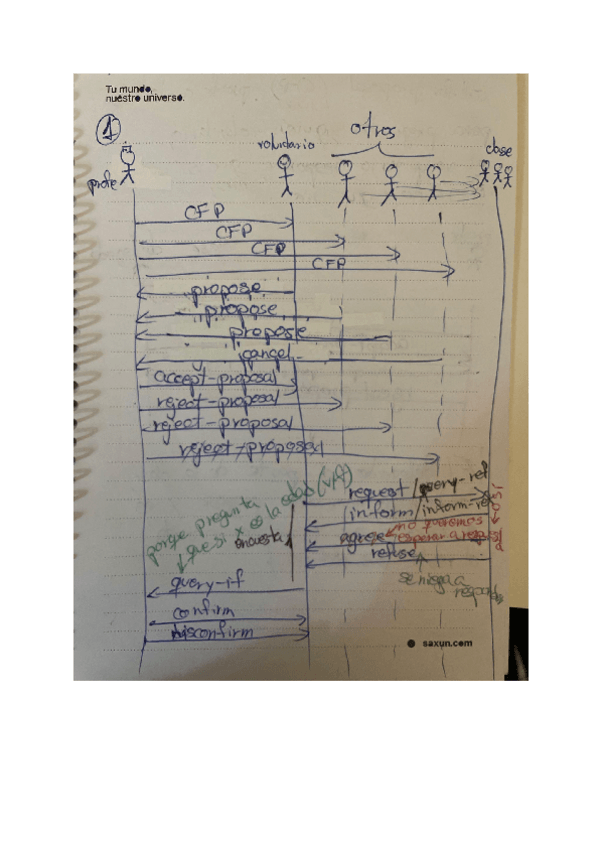 Tu mundo,
nuestro universo.
1
otros
voluntario
clase
profe
CFP
CFP
CFP
CFP
propose
propose
propose
cancel
accept-proposal
reject-proposal
reject-proposal
reject-proposal
request /query-ref
porque pregunta
que si x es la edad (V/F)
encuesta
inform/inform-ref
no queremos
esperar a
agree
refuse
se niega a
responder
query-if
confirm
disconfirm
saxun.com